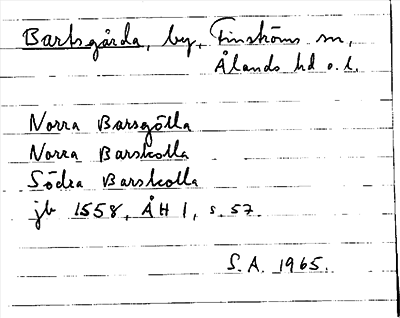 Bartsgårda, by, Finströms sn,
Ålands hd o. l.
Norra Barsgötla
Norra Barskolla
Södra Barskolla
jb 1558, ÅH 1, s. 57.
S.A. 1965.